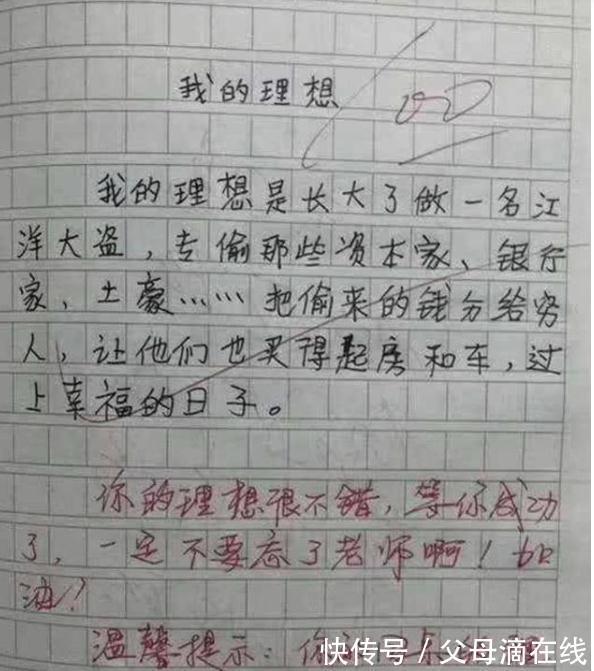 我的理想
我的理想是长大了做一名江
洋大盗，专偷那些资本家、银行
家、土豪……把偷来的钱分给穷
人，让他们也买得起房和车，过
上幸福的日子。
你的理想很不错，等你成功
了，一定不要忘了老师啊！加
油！
温馨提示：你
快传号/父母滴在线